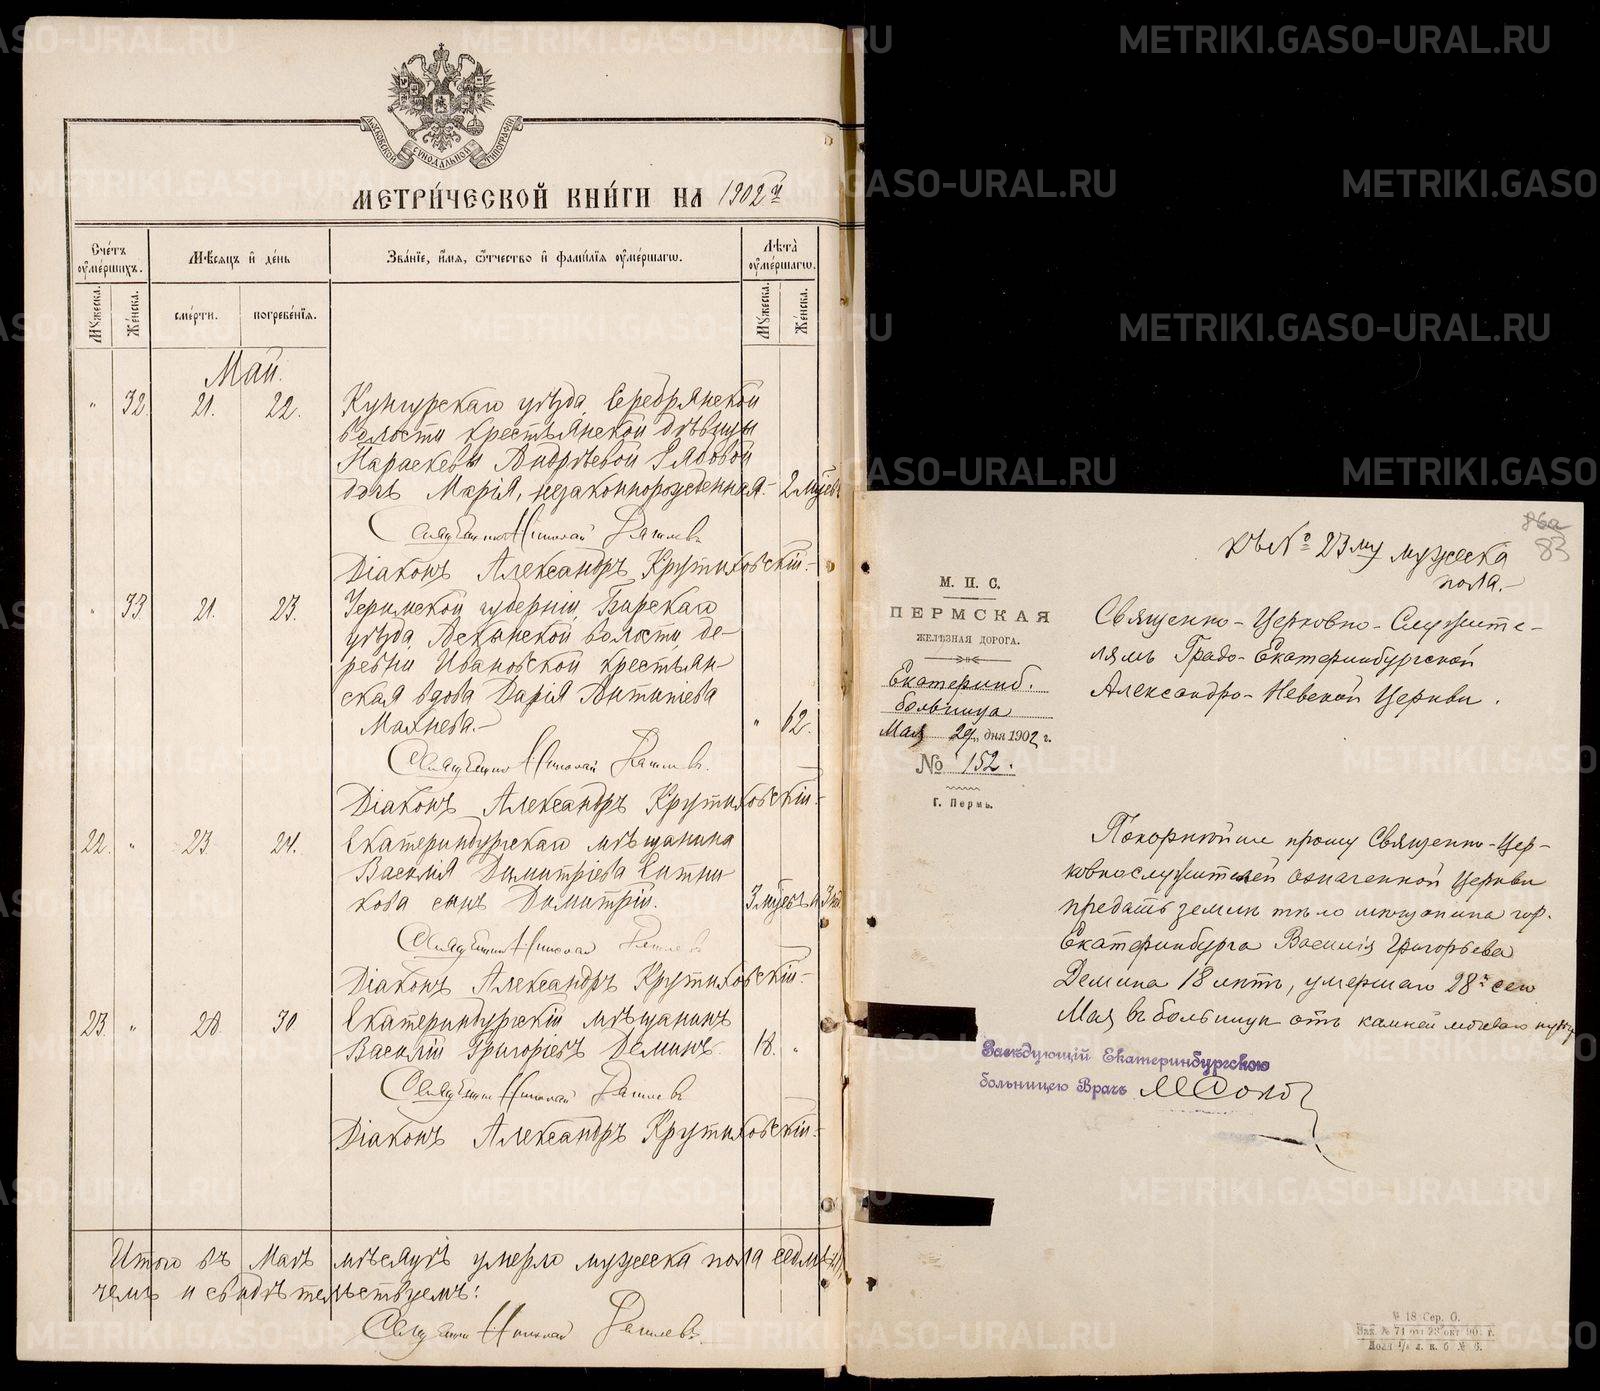 METRIKI.GASO-URAL.RU
МОСКОВСКОЙ СѴНОДАЛЬНОЙ ТИПОГРАФІИ
МЕТРИ́ЧЕСКОЙ КНИ́ГИ НА 1902й
Сче́тъ оуме́ршихъ.
Мѣсяцъ и день
Зва́нїе, и́мя, ѻ́тчество и фами́лїя оуме́ршагѡ.
Лѣта̀ оуме́ршагѡ.
Мꙋжеска.
Же́нска.
сме́рти.
погребе́нїя.
Мꙋжеска.
Же́нска.
Май.
" 32 21. 22. Кунгурскаго уѣзда, Серебрянской
волости крестьянской дѣвицы
Параскевы Андреевой Рядовой
дочь Марія, незаконнорожденная. 2 мѣс
Священникъ Николай
Діаконъ Александръ Крутиховскій.
" 33 21. 23. Уфимской губерніи, Бирскаго
уѣзда, Асканской волости, де-
ревни Ивановской крестьян-
ская вдова Дарія Антипіева
Махнева. " 62.
Священникъ Николай
Діаконъ Александръ Крутиховскій.
22. " 23. 24. Екатеринбургскаго мѣщанина
Василія Димитріева Ситни-
кова сынъ Димитрій. 3 мѣс. и 3 н
Священникъ Николай
Діаконъ Александръ Крутиховскій.
23. " 28. 30. Екатеринбургскій мѣщанинъ
Василій Григорьевъ Деминъ. 18. "
Священникъ Николай
Діаконъ Александръ Крутиховскій.
Итого въ Маѣ мѣсяцѣ умерло мужеска пола седмь
чемъ и свидѣтельствуемъ:
Священникъ Николай
86а
83
Къ № 23му мужеска
пола.
М. П. С.
ПЕРМСКАЯ
ЖЕЛѢЗНАЯ ДОРОГА.
Екатеринб.
больница
Мая 29 дня 1902 г.
№ 152.
Г. Пермь.
Священно-Церковно-Служите-
лямъ Градо-Екатеринбургской
Александро-Невской Церкви.
Покорнѣйше прошу Священно-Цер-
ковнослужителей означенной Церкви
предать землѣ тѣло мѣщанина гор.
Екатеринбурга Василія Григорьева
Демина 18 лѣтъ, умершаго 28го сего
Мая въ больницѣ отъ камней мочеваго пузы
Завѣдующій Екатеринбургскою
больницею Врачъ
№ 18 Сер. О.